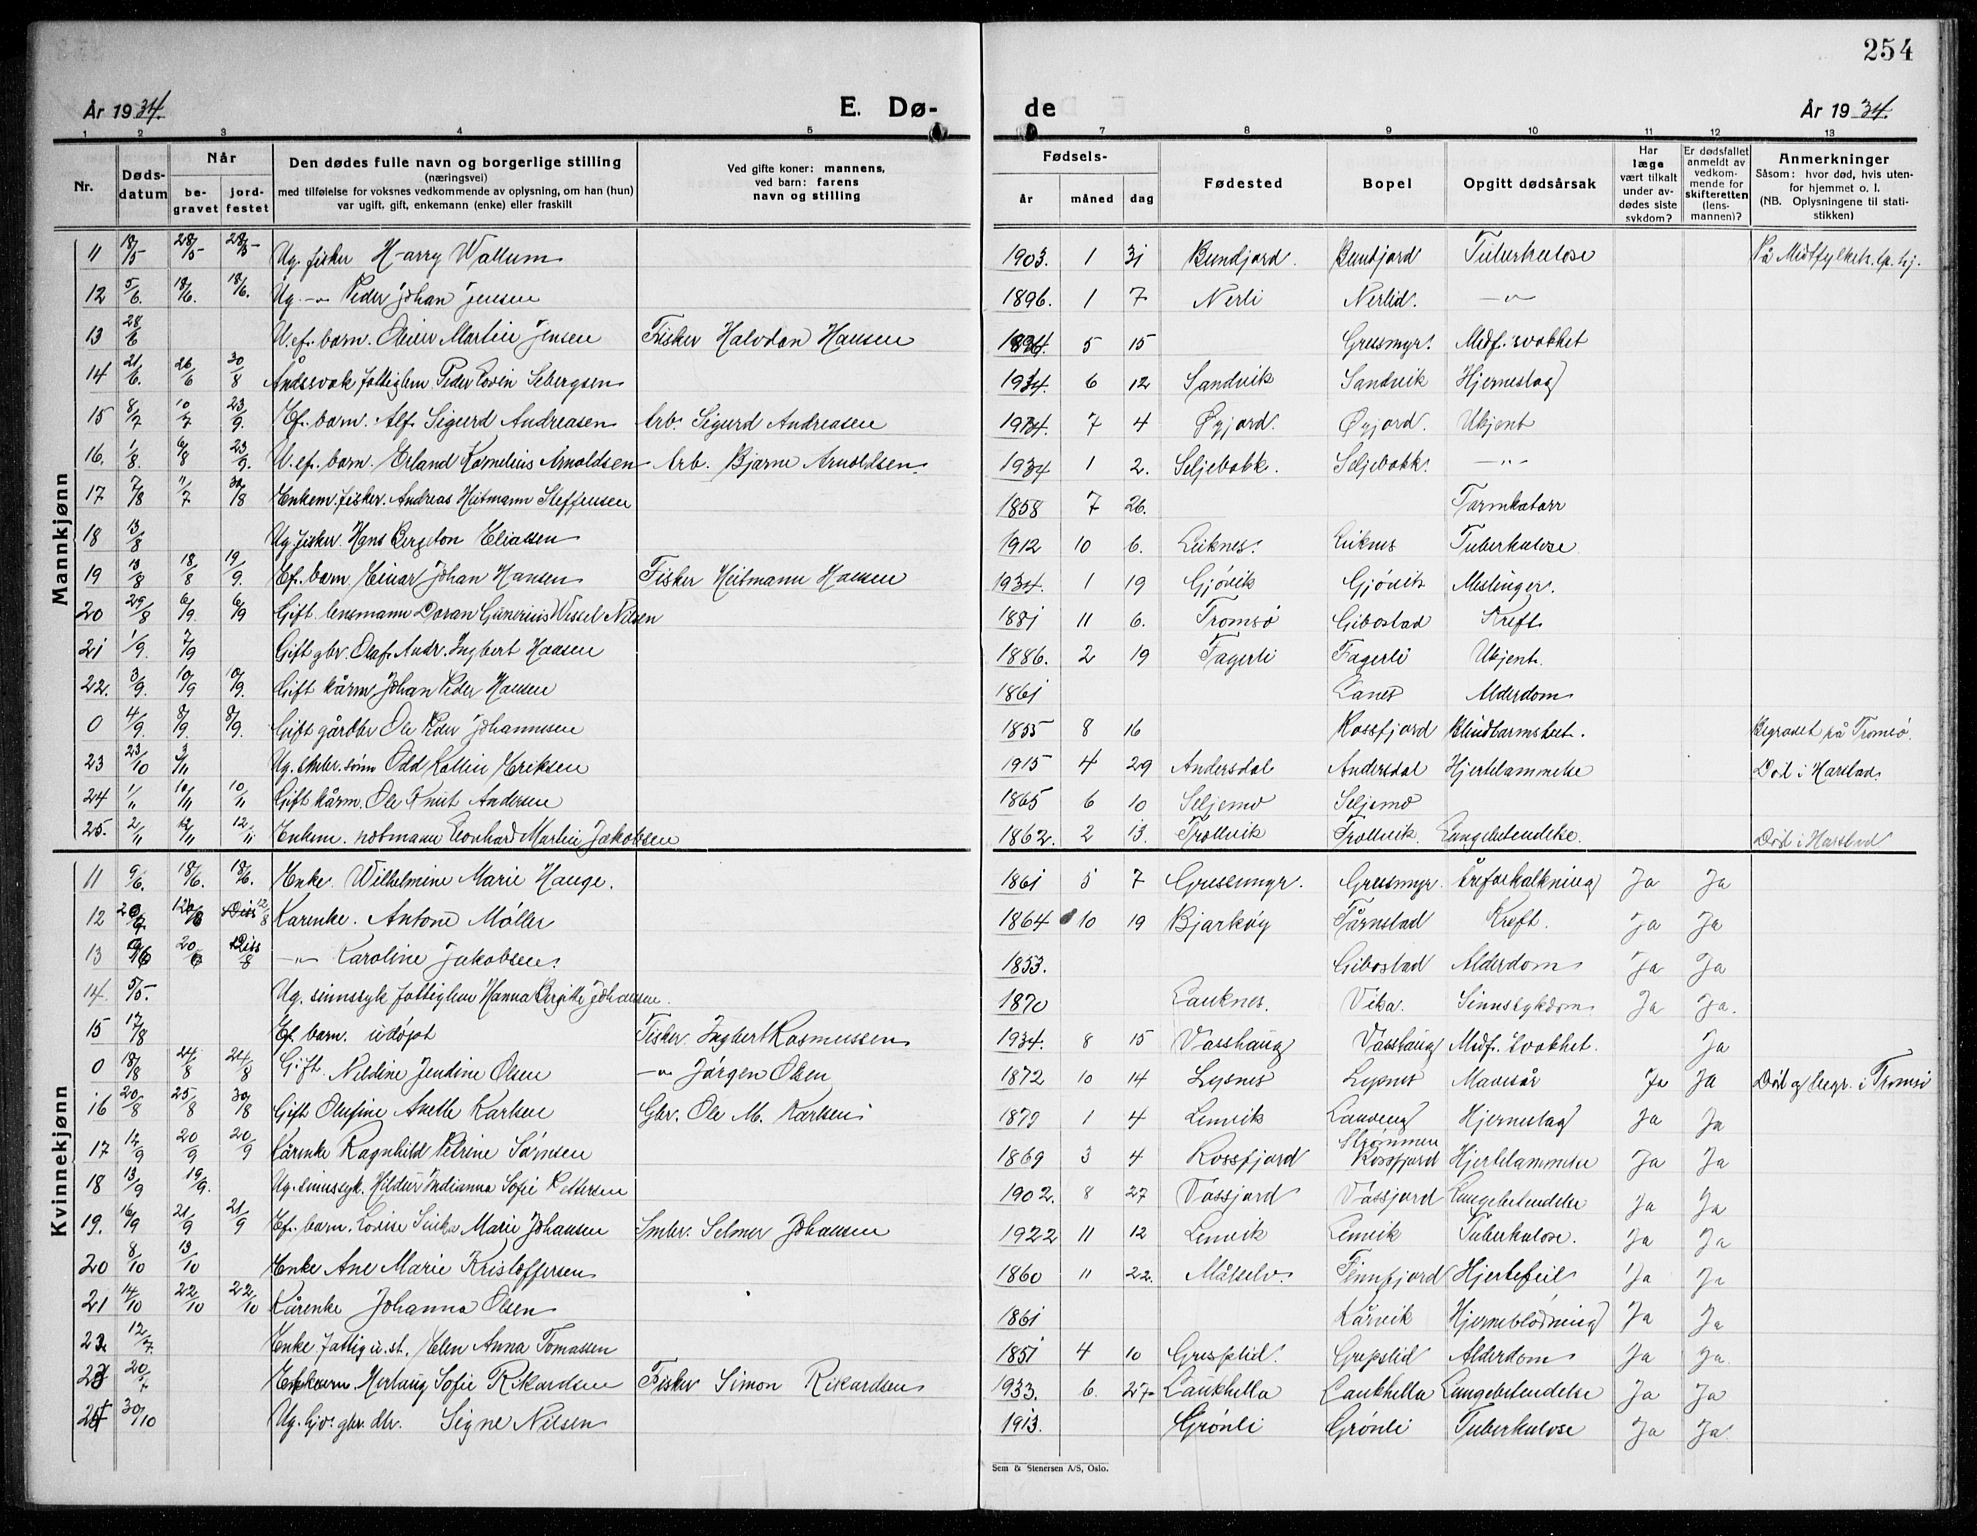 254
År 1934. E. Dø- de År 1934.
1 2 3 4 5 7 8 9 10 11 12 13
Nr. Døds-datum Når be-gravet jord-festet Den dødes fulle navn og borgerlige stilling (næringsvei) med tilføielse for voksnes vedkommende av oplysning, om han (hun) var ugift, gift, enkemann (enke) eller fraskilt Ved gifte koner: mannens, ved barn: farens navn og stilling Fødsels- år måned dag Fødested Bopel Opgitt dødsårsak Har læge vært tilkalt under av-dødes siste sykdom? Er dødsfallet anmeldt av vedkom-mende for skifteretten (lens-mannen)? Anmerkninger Såsom: hvor død, hvis uten-for hjemmet o. l. (NB. Oplysningene til stati-stikken)
Mannkjønn
11 18/5 28/5 28/5 Ug. fisker Harry Wallum 1903. 1 31 Bundjord. Bundjord Tuberkulose På Midtfylkets. sp. hj.
12 5/6. 18/6. 18/6. Ug. -"- Peder Johan Jensen 1896. 1 7 Nerli Nerlid. -"-
13 28/6 U.ef. barn. Oliver Martin Jensen Fisker Halvdan Hansen 1934. 5 15 Gressmyr. Medf. svakhet
14 21/6. 26/6 30/8 Åndssvak fattiglem Peder Edvin Sebergsen 1934. 6 12 Sandvik Sandvik Hjerneslag
15 8/7 10/7 23/9. Ef. barn. Alf Sigurd Andreasen Arb. Sigurd Andreasen 1934. 7 4 Øyjord. Øyjord. Ukjent
16. 1/8. 6/8 23/9. U.ef. barn. Erland Kornelius Arnoldsen Arb. Bjarne Arnoldsen. 1934 1 2. Seljebakk. Seljebakk. -"-
17 7/8 11/7 30/8 Enkem. fisker. Andreas Heitmann Steffensen 1858 7 26. Tarmkatarr
18 13/8 Ug. fisker. Hans Bergeton Eliassen 1912 10 6. Leiknes. Leiknes Tuberkulose
19 13/8 18/8 19/9. Ef. barn Einar Johan Hansen Fisker Heitmann Hansen 1934. 1 19 Gjøvik Gjøvik Meslinger.
20 29/8 6/9. 6/9 Gift lensmann Doran Gunerius Wessel Nilsen 1881 11 6. Tromsø Gibostad Kreft
21 1/9. 7/9 Gift gbr. Olaf Andr. Ingbert Hansen 1886. 2 19 Fagerli Fagerli Ukjent.
22. 3/9. 10/9 10/9. Gift kårm. Johan Peder Hansen 1861 Lanes Alderdom
0 4/9. 8/9. 8/9. Gift gårdbr Ole Peder Johannesen 1855 8 16 Rossfjord Blindtarmsbet. Begravet på Tromsø.
23 23/10 3/11 Ug. småbr. sønn Odd Kallin Eriksen 1915 4 29 Andersdal Andersdal Hjertelammelse Død i Harstad.
24 1/11 10/11 10/11 Gift kårm. Ole Knut Andersen 1865 6 10 Seljemo Seljemo
25. 2/11 12/11 12/11 Enkem. notmann Leonhard Martin Jakobsen 1862. 2 13. Trollvik Trollvik Lungebetendelse. Død i Harstad
Kvinnekjønn
11 9/6. 18/6. 18/6. Enke Wilhelmine Marie Hauge. 1861 5 7 Gressmyr. Gressmyr. Åreforkalkning Ja Ja
12 12/8 Kårenke. Antone Møller 1864 10 19 Bjarkøy Tårnstad Kreft. Ja Ja
13 20/6 -"- Karoline Jakobsen. 1853. Gibostad Alderdom Ja Ja
14. 5/5. Ug. sinnssyk fattiglem Hanna Birgitte Johansen. 1870 Lauknes. Vika. Sinnssykdom Ja Ja.
15 17/8 Ef. barn. udøpt Fisker Ingbert Rasmussen 1934. 8 15 Vasshaug Vasshaug Medf. svakhet. Ja
0 18/8 24/8 24/8 Gift. Neldine Jendine Olsen -"- Jørgen Olsen 1872 10 14 Lysnes Lysnes Mavesår Ja Ja Død og begr. i Tromsø
16 20/8 25/8 30/8 Gift Olufine Anette Karlsen Gbr. Ole M. Karlsen 1879 1 4 Lenvik Laukeng Hjerneslag Ja Ja
17 12/9 20/9 20/9 Kårenke Ragnhild Petrine Sørnsen 1869 3 4 Rossfjord Strømmen Rossfjord Hjertelammelse Ja Ja
18 13/9 19/9. Ug. sinnssyk. Hildur Indianna Sofie Pettersen 1902. 8 27 Vassjord Vassjord Lungebetendelse Ja Ja
19. 16/9 21/9 21/9 Ef. barn. Lovise Sinka Marie Johansen Småbr. Selmer Johansen 1922 11 12 Lenvik Lenvik Tuberkulose. Ja Ja
20 8/10 13/10 Enke Ane Marie Kristoffersen 1860 11 22. Målselv. Finnfjord Hjertefeil Ja Ja
21 14/10 22/10 22/10 Kårenke Johanna Olsen 1861 Kårvik Hjerneblødning Ja Ja
22. 12/7. Enke fattig u.st. Elen Anna Tomassen 1851 4 10 Grepslid. Grepslid Alderdom Ja Ja.
23 20/7 Ef. barn Herlaug Sofie Rikardsen Fisker Simon Rikardsen 1933. 6. 27 Laukhella Laukhella Lungebetendelse Ja Ja
24 30/10 Ug. hjv. gbr. dtr. Signe Nilsen 1913. Grønli Grønli Tuberkulose Ja Ja
Sem & Stenersen A/S, Oslo.